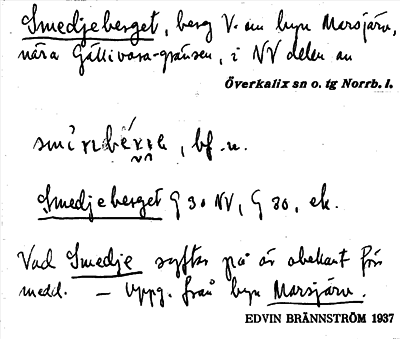 Smedjeberget, berg V. om byn Marsjärv,
nära Gällivara-gränsen, i NV delen av
Överkalix sn o. tg Norrb. l.
bf. n.
Smedjeberget G 30 NV, G 30, ek.
Vad Smedje syftar på är obekant för
medd. – Uppg. från byn Marsjärv.
EDVIN BRÄNNSTRÖM 1937